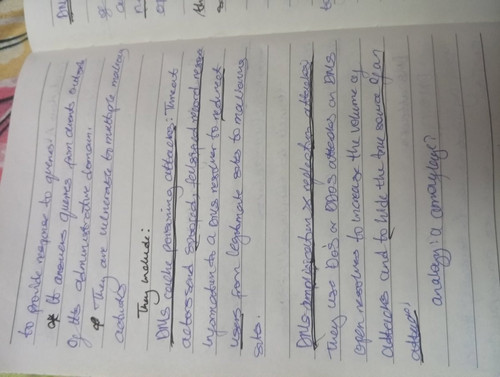 to provide response to queries.
* It answers queries from clients outside
of its administrative domain.
They are vulnerable to multiple malicious
activities
They include:
DNS cache poisoning attacks: Threat
actors send spoofed, falsified record
information to a DNS resolver to redirect
users from legitimate sites to malicious
sites.
DNS amplification & reflection attacks:
They use DoS or DDoS attacks on DNS
open resolvers to increase the volume of
attacks and to hide the true source of an
attack.
analogy:
DNS